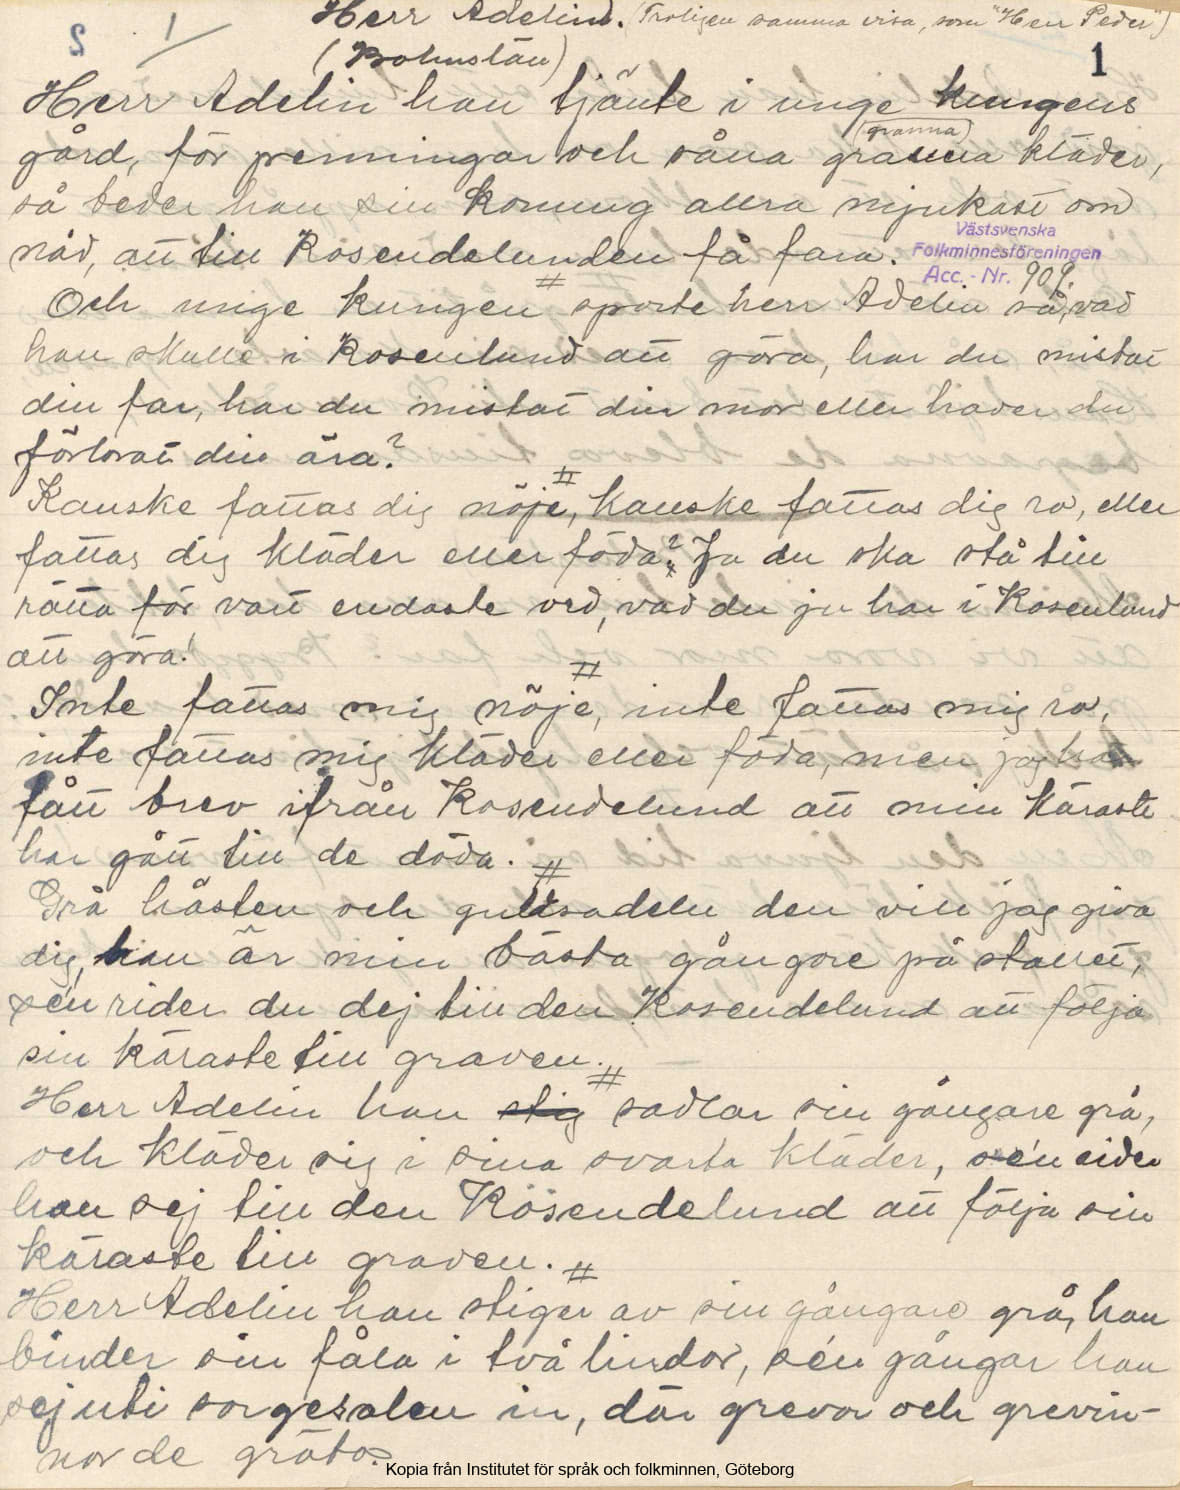 Herr Adelin. (Troligen samma visa, som "Herr Peder")
2 1
(Bohuslän)
1
Herr Adelin han tjänte i unge kungens
gård, för penningar och såna granna kläder,
(granna)
så beder han sin konung allra mjukast om
nåd, att till Rosendelunden få fara.
Västsvenska
Folkminnesföreningen
Acc. - Nr. 909.
#
Och unge kungen sporte herr Adelin så, vad
han skulle i Rosenlund att göra, har du mistat
din far, har du mistat din mor eller haver du
förlorat din ära?
#
Kanske fattas dig nöje, kanske fattas dig ro, eller
fattas dig kläder eller föda? Ja du ska stå till
rätta för vart endaste ord, vad du ju har i Rosenlund
att göra!
#
Inte fattas mig nöje, inte fattas mig ro,
inte fattas mig kläder eller föda, men jag har
fått brev ifrån Rosendelund att min käraste
har gått till de döda.
#
Grå hästen och gullsadeln den vill jag giva
dig, han är min bästa gångare på stallet,
se'n rider du dej till den Rosendelund att följa
sin käraste till graven.
#
Herr Adelin han stig sadlar sin gångare grå,
och kläder sig i sina svarta kläder, se'n rider
han sej till den Rosendelund att följa sin
käraste till graven.
#
Herr Adelin han stiger av sin gångare grå, han
binder sin fåla i två lindor, se'n gångar han
sej uti sorgesalen in, där grevar och grevin-
nor de gråta.
Kopia från Institutet för språk och folkminnen, Göteborg